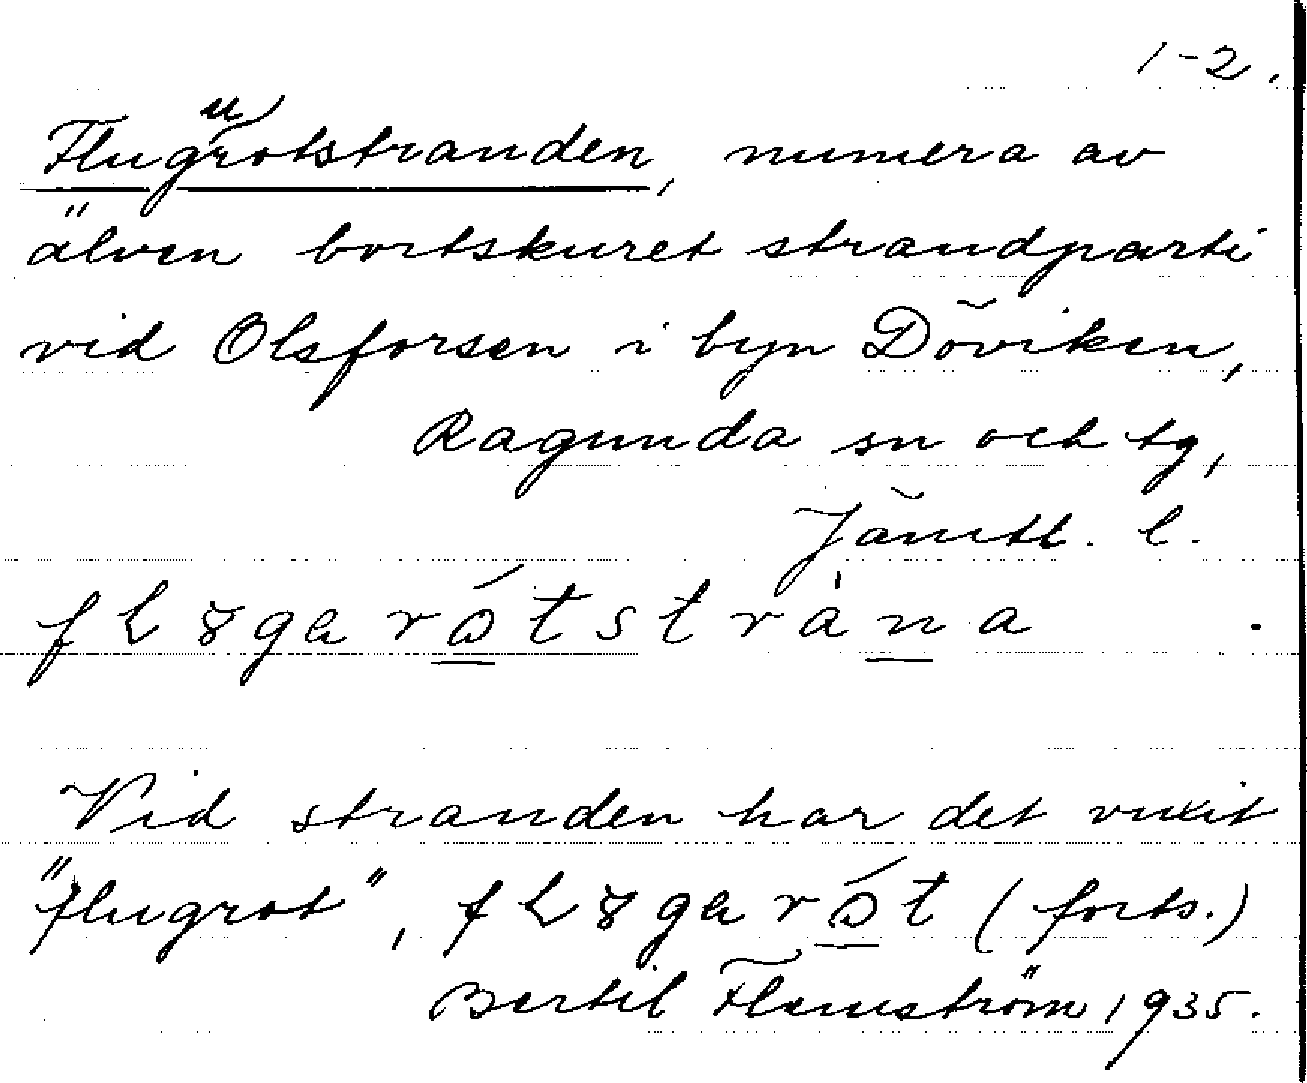 1-2.
Flugurotstranden, numera av
älven bortskuret strandparti
vid Olsforsen i byn Döviken,
Ragunda sn och tg,
Jämtl. l.
Vid stranden har det vuxit
"flugrot", (forts.)
Bertil Flemström 1935.